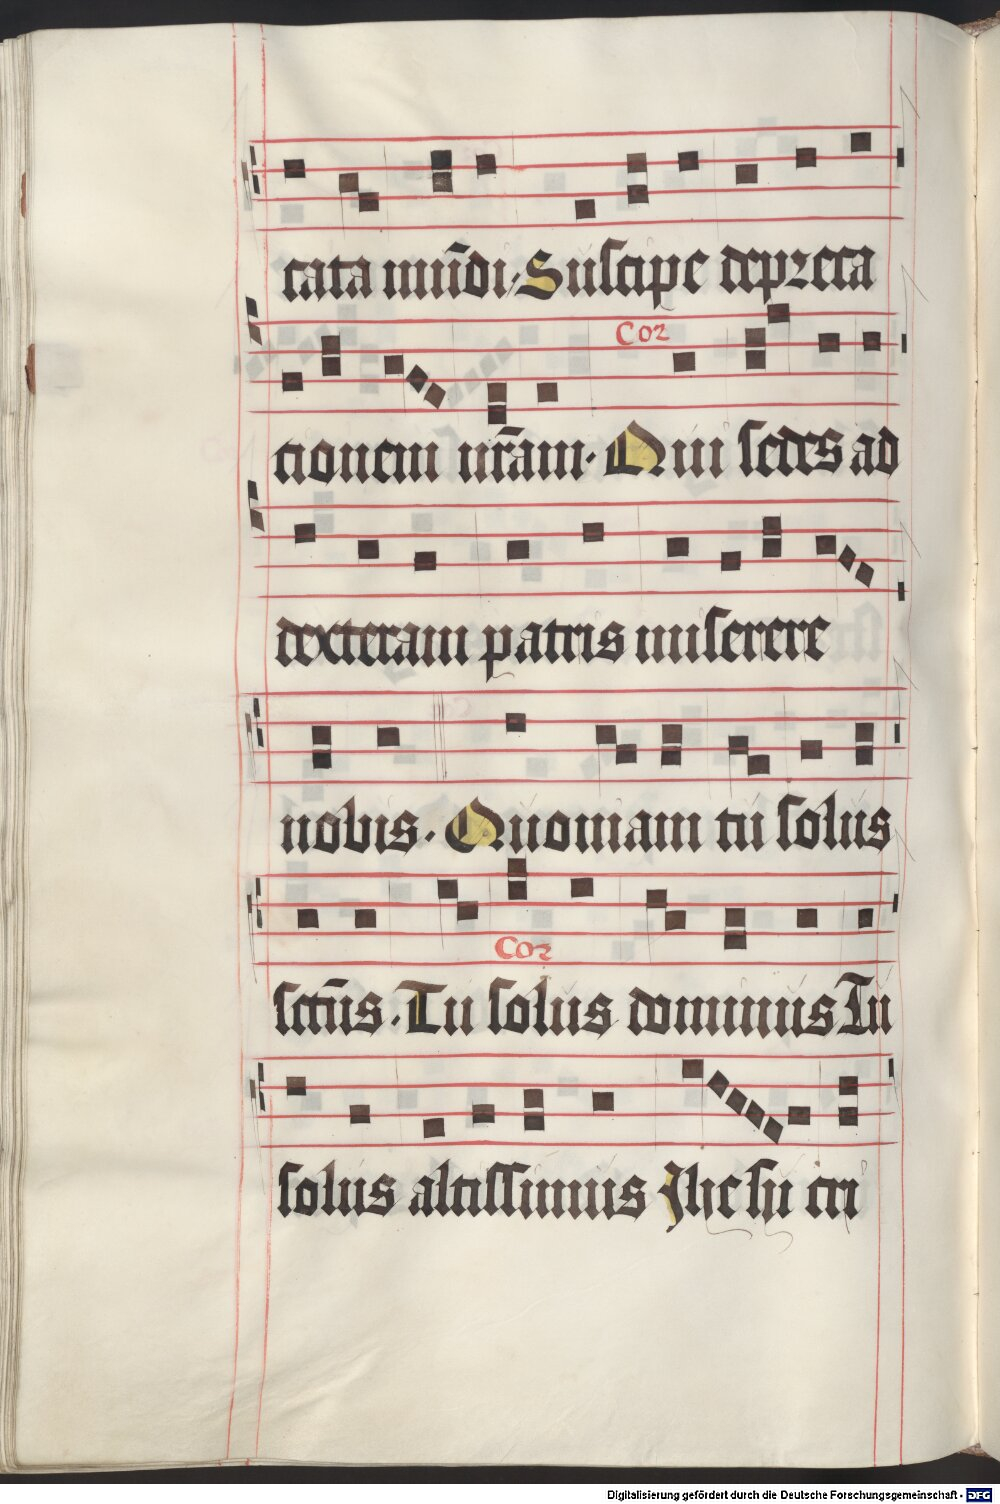 cata mūdi. Suscipe depreca
Cor
tionem nr̄am. Qui sedes ad
dexteram patris miserere
nobis. Quoniam tu solus
Cor
sctūs. Tu solus dominus Tu
solus altissimus Jhesu cri
Digitalisierung gefördert durch die Deutsche Forschungsgemeinschaft - DFG